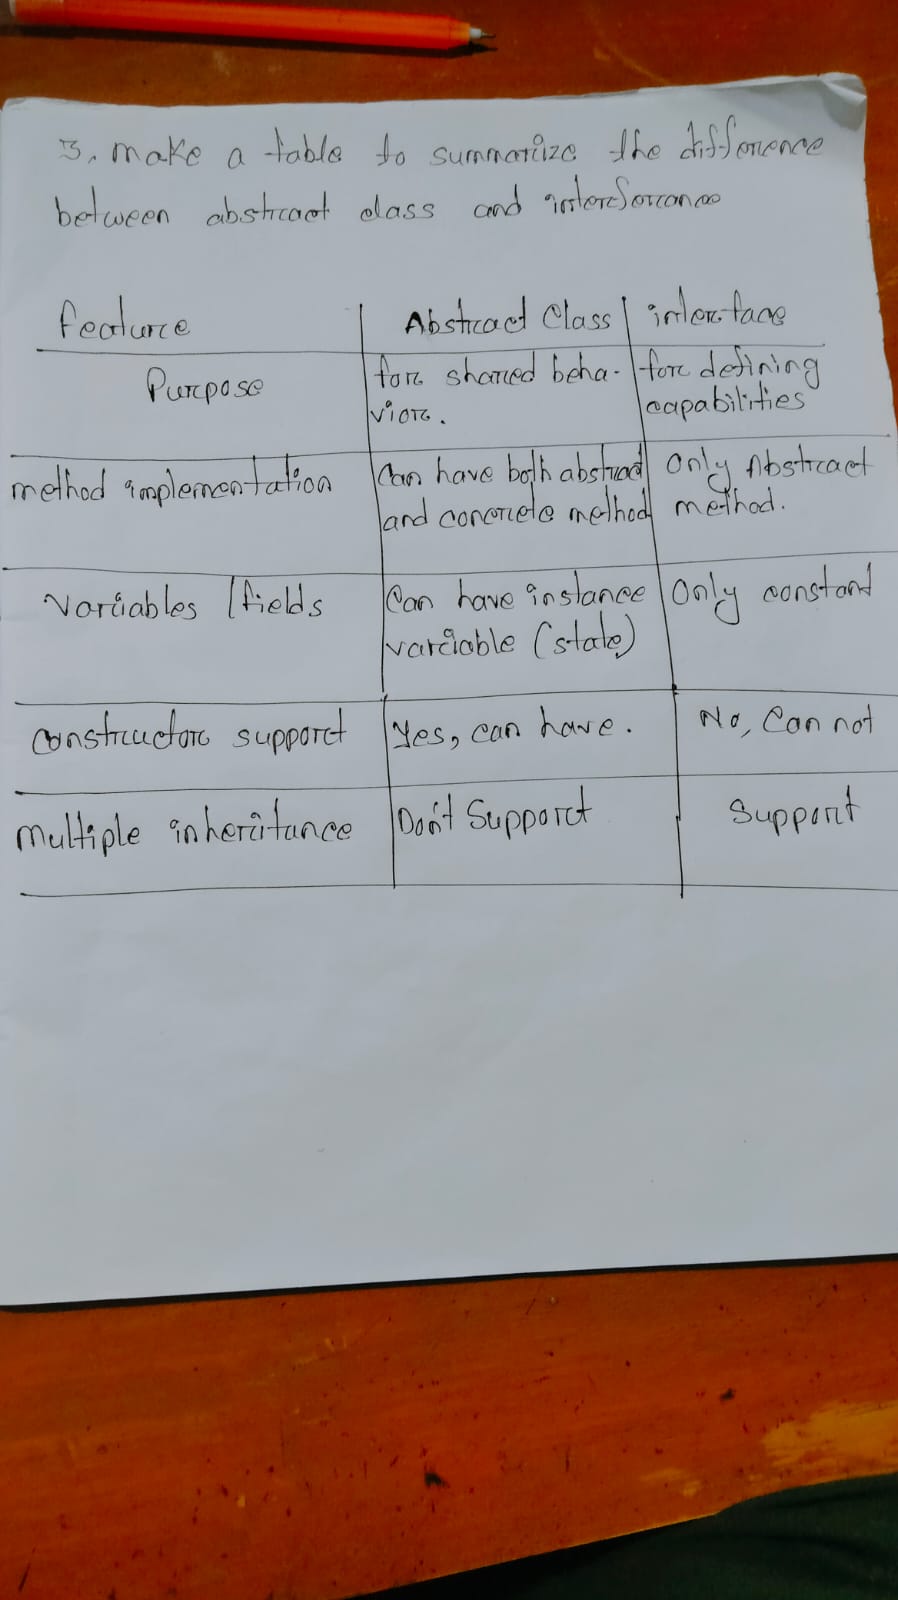 3. make a table to summarize the difference
between abstract class and interferance
feature
Abstract Class
interface
Purpose
for shared beha-
vior.
for defining
capabilities
method implementation
Can have both abstract
and concrete method
Only Abstract
method.
Variables / fields
Can have instance
variable (state)
Only constant
constructor support
Yes, can have.
No, Can not
multiple inheritance
Don't Support
Support